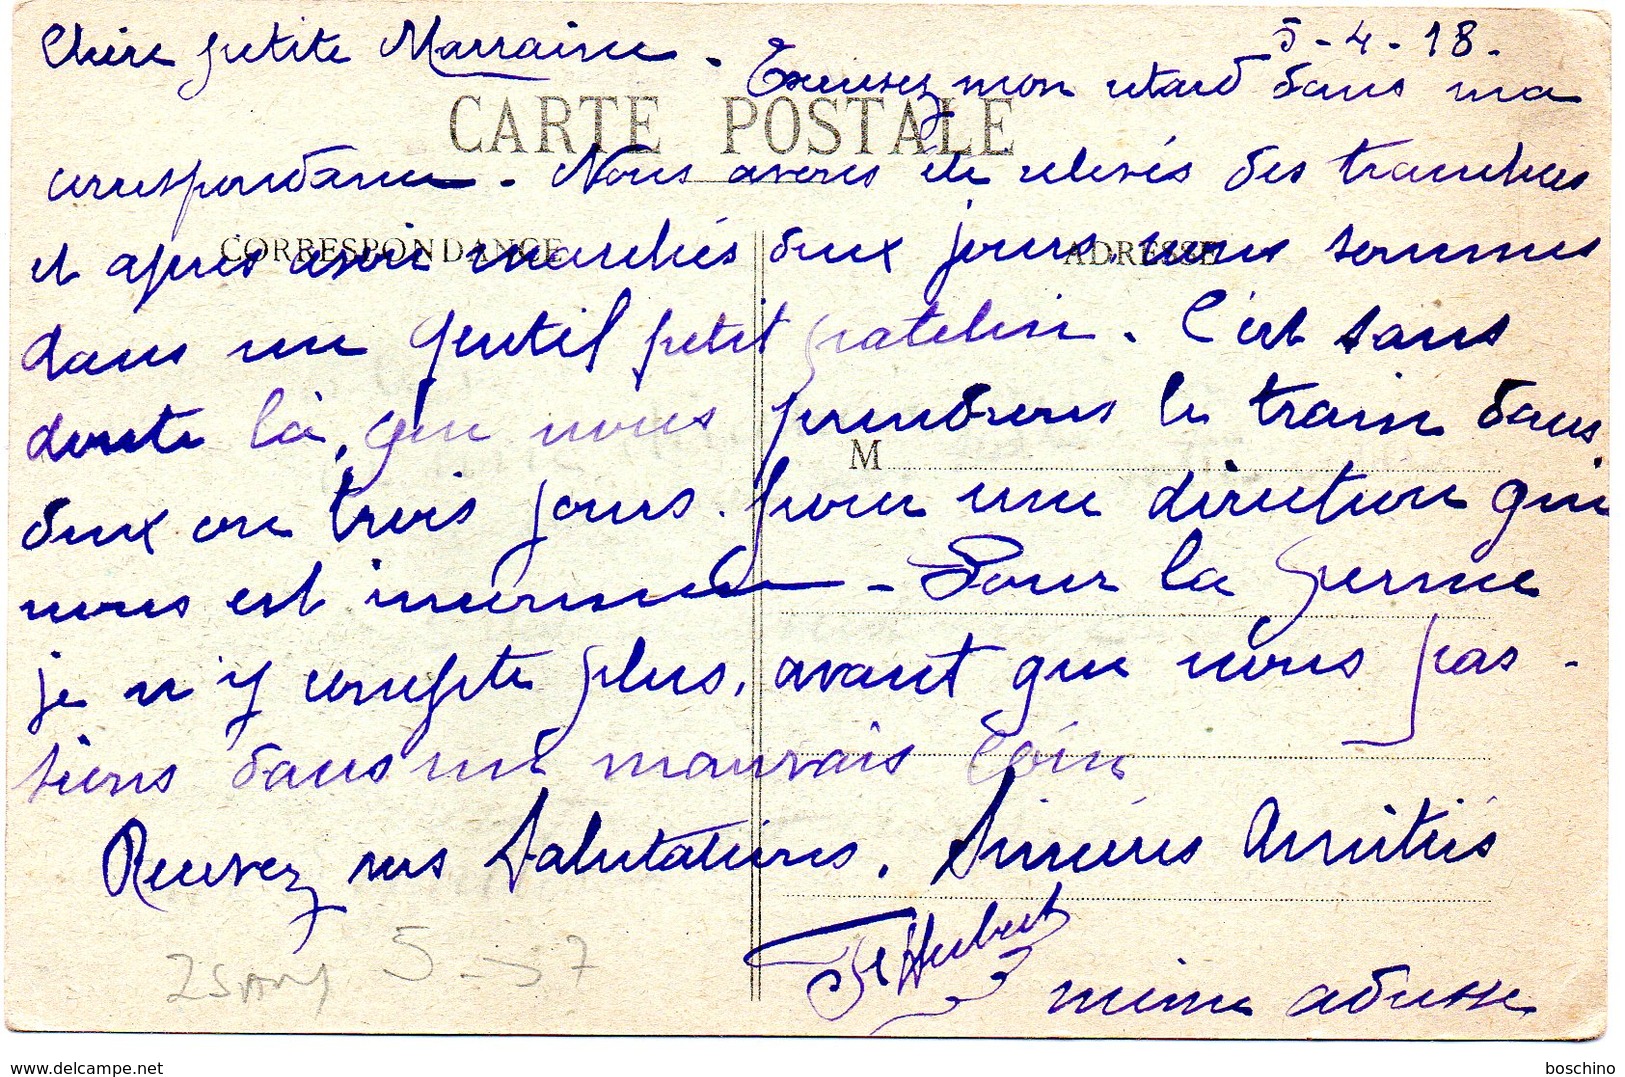 5-4-18.
Chère petite Marraine.
Excusez mon retard dans ma
CARTE POSTALE
correspondance. Nous avons été relevés des tranchées
CORRESPONDANCE
ADRESSE
et après avoir marchés deux jours, nous sommes
dans un gentil petit patelin. C'est sans
doute là, que nous prendrons le train dans
M
deux ou trois jours. pour une direction qui
nous est inconnue - Pour la perme
je n'y compte plus, avant que nous pas-
sions dans un mauvais coin
Recevez mes Salutations. Sincères Amitiés
Hubert
même adresse
5 - 37
www.delcampe.net
boschino